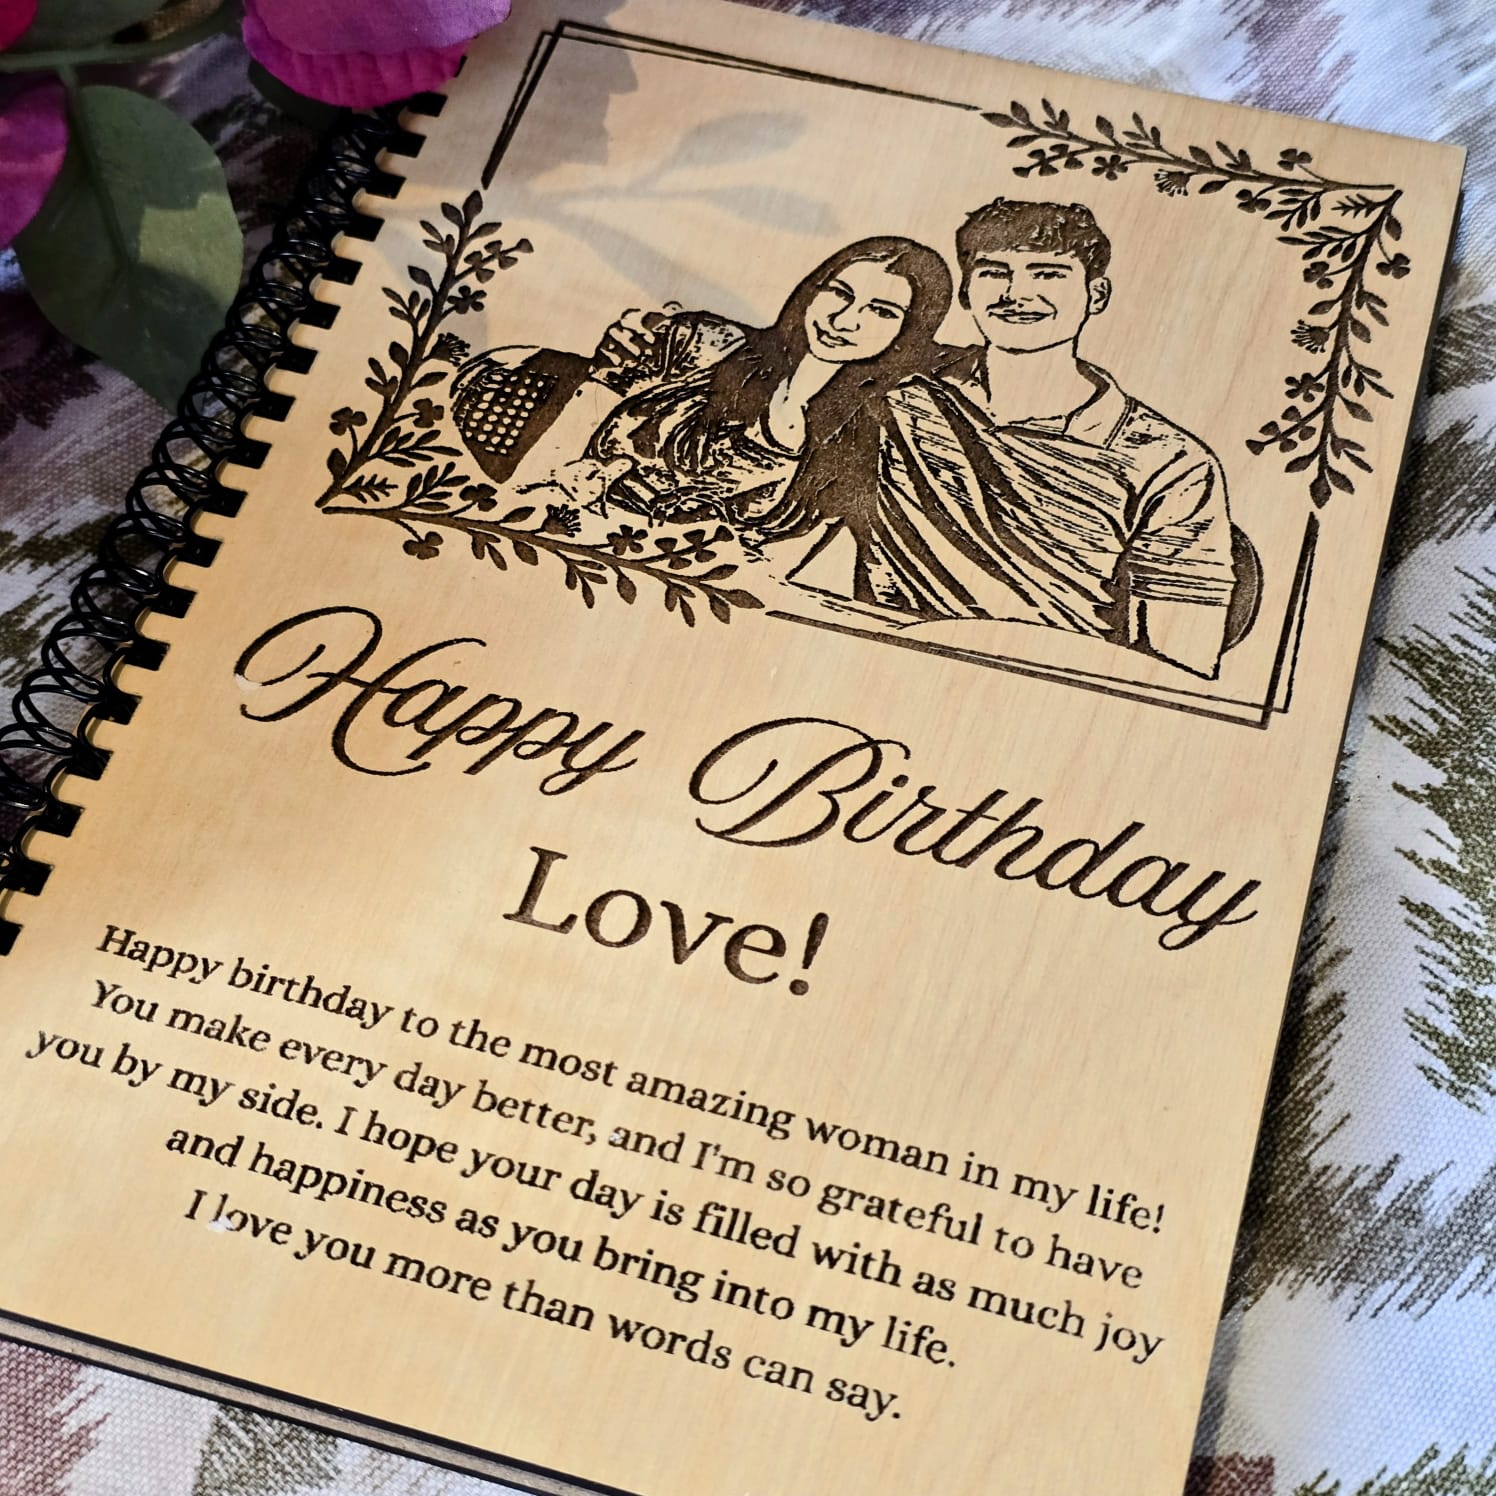 Happy Birthday
Love!
Happy birthday to the most amazing woman in my life!
You make every day better, and I'm so grateful to have
you by my side. I hope your day is filled with as much joy
and happiness as you bring into my life.
I love you more than words can say.